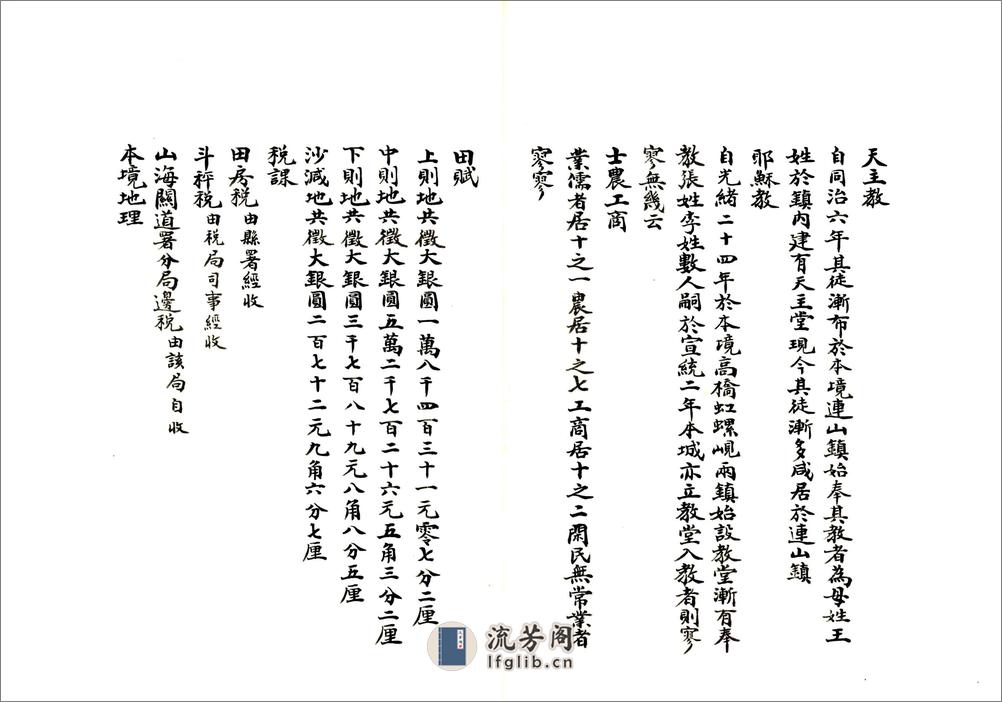 天主教
自同治六年其徒漸布於本境連山鎮始奉其教者為母姓王
姓於鎮內建有天主堂現今其徒漸多咸居於連山鎮
耶穌教
自光緒二十四年於本境高橋虹螺峴兩鎮始設教堂漸有奉
教張姓李姓數人嗣於宣統二年本城亦立教堂入教者則寥
寥無幾云
士農工商
業儒者居十之一農居十之七工商居十之二閑民無常業者
寥寥
田賦
上則地共徵大銀圓一萬八千四百三十一元零七分二厘
中則地共徵大銀圓五萬二千七百二十六元五角三分二厘
下則地共徵大銀圓三千七百八十九元八角八分五厘
沙減地共徵大銀圓二百七十二元九角六分七厘
稅課
田房稅由縣署經收
斗秤稅由稅局司事經收
山海關道署分局邊稅由該局自收
本境地理
流芳阁
lfglib.cn